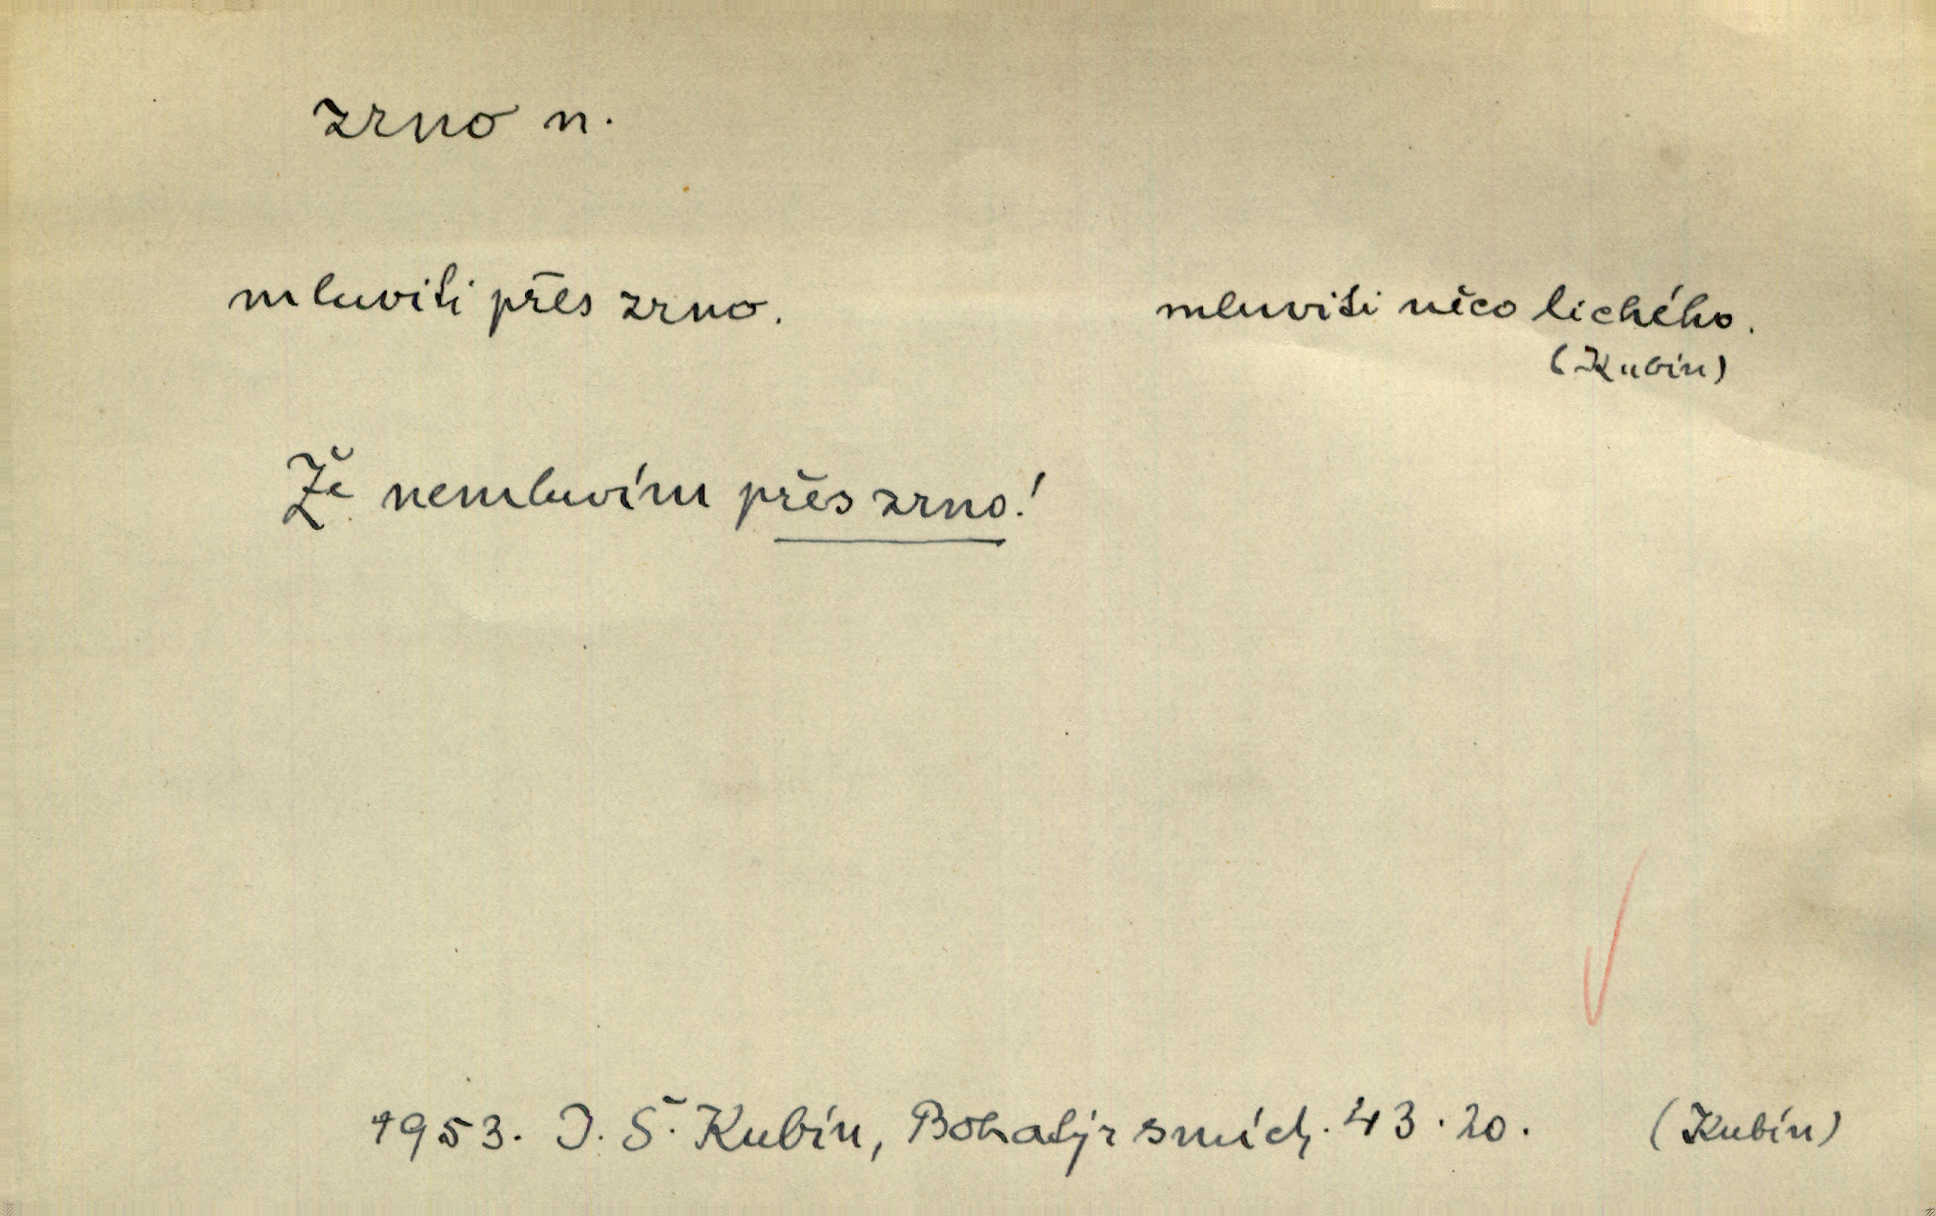 zrno n.
mluviti přes zrno. mluviti něco lichého.
(Kubín)
Že nemluvím přes zrno!
1953. J. Š. Kubín, Bohatýr smích. 43. 20. (Kubín)